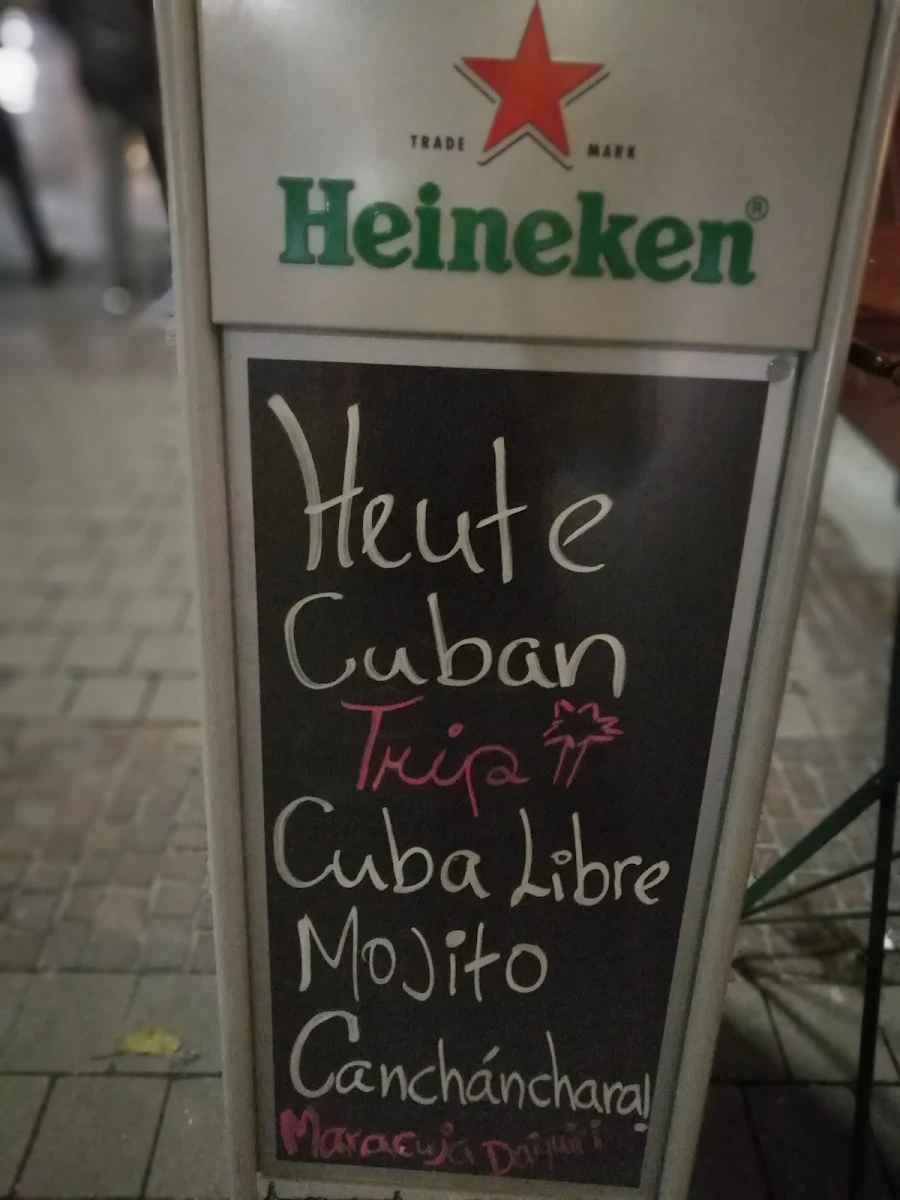 TRADE MARK
Heineken®
Heute
Cuban
Trip
Cuba Libre
Mojito
Canchánchara!
Maracuja Daiquiri